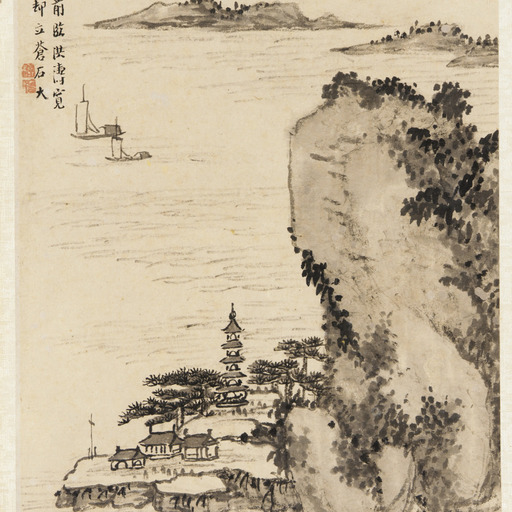 前臨洪濤寬
却立蒼石大